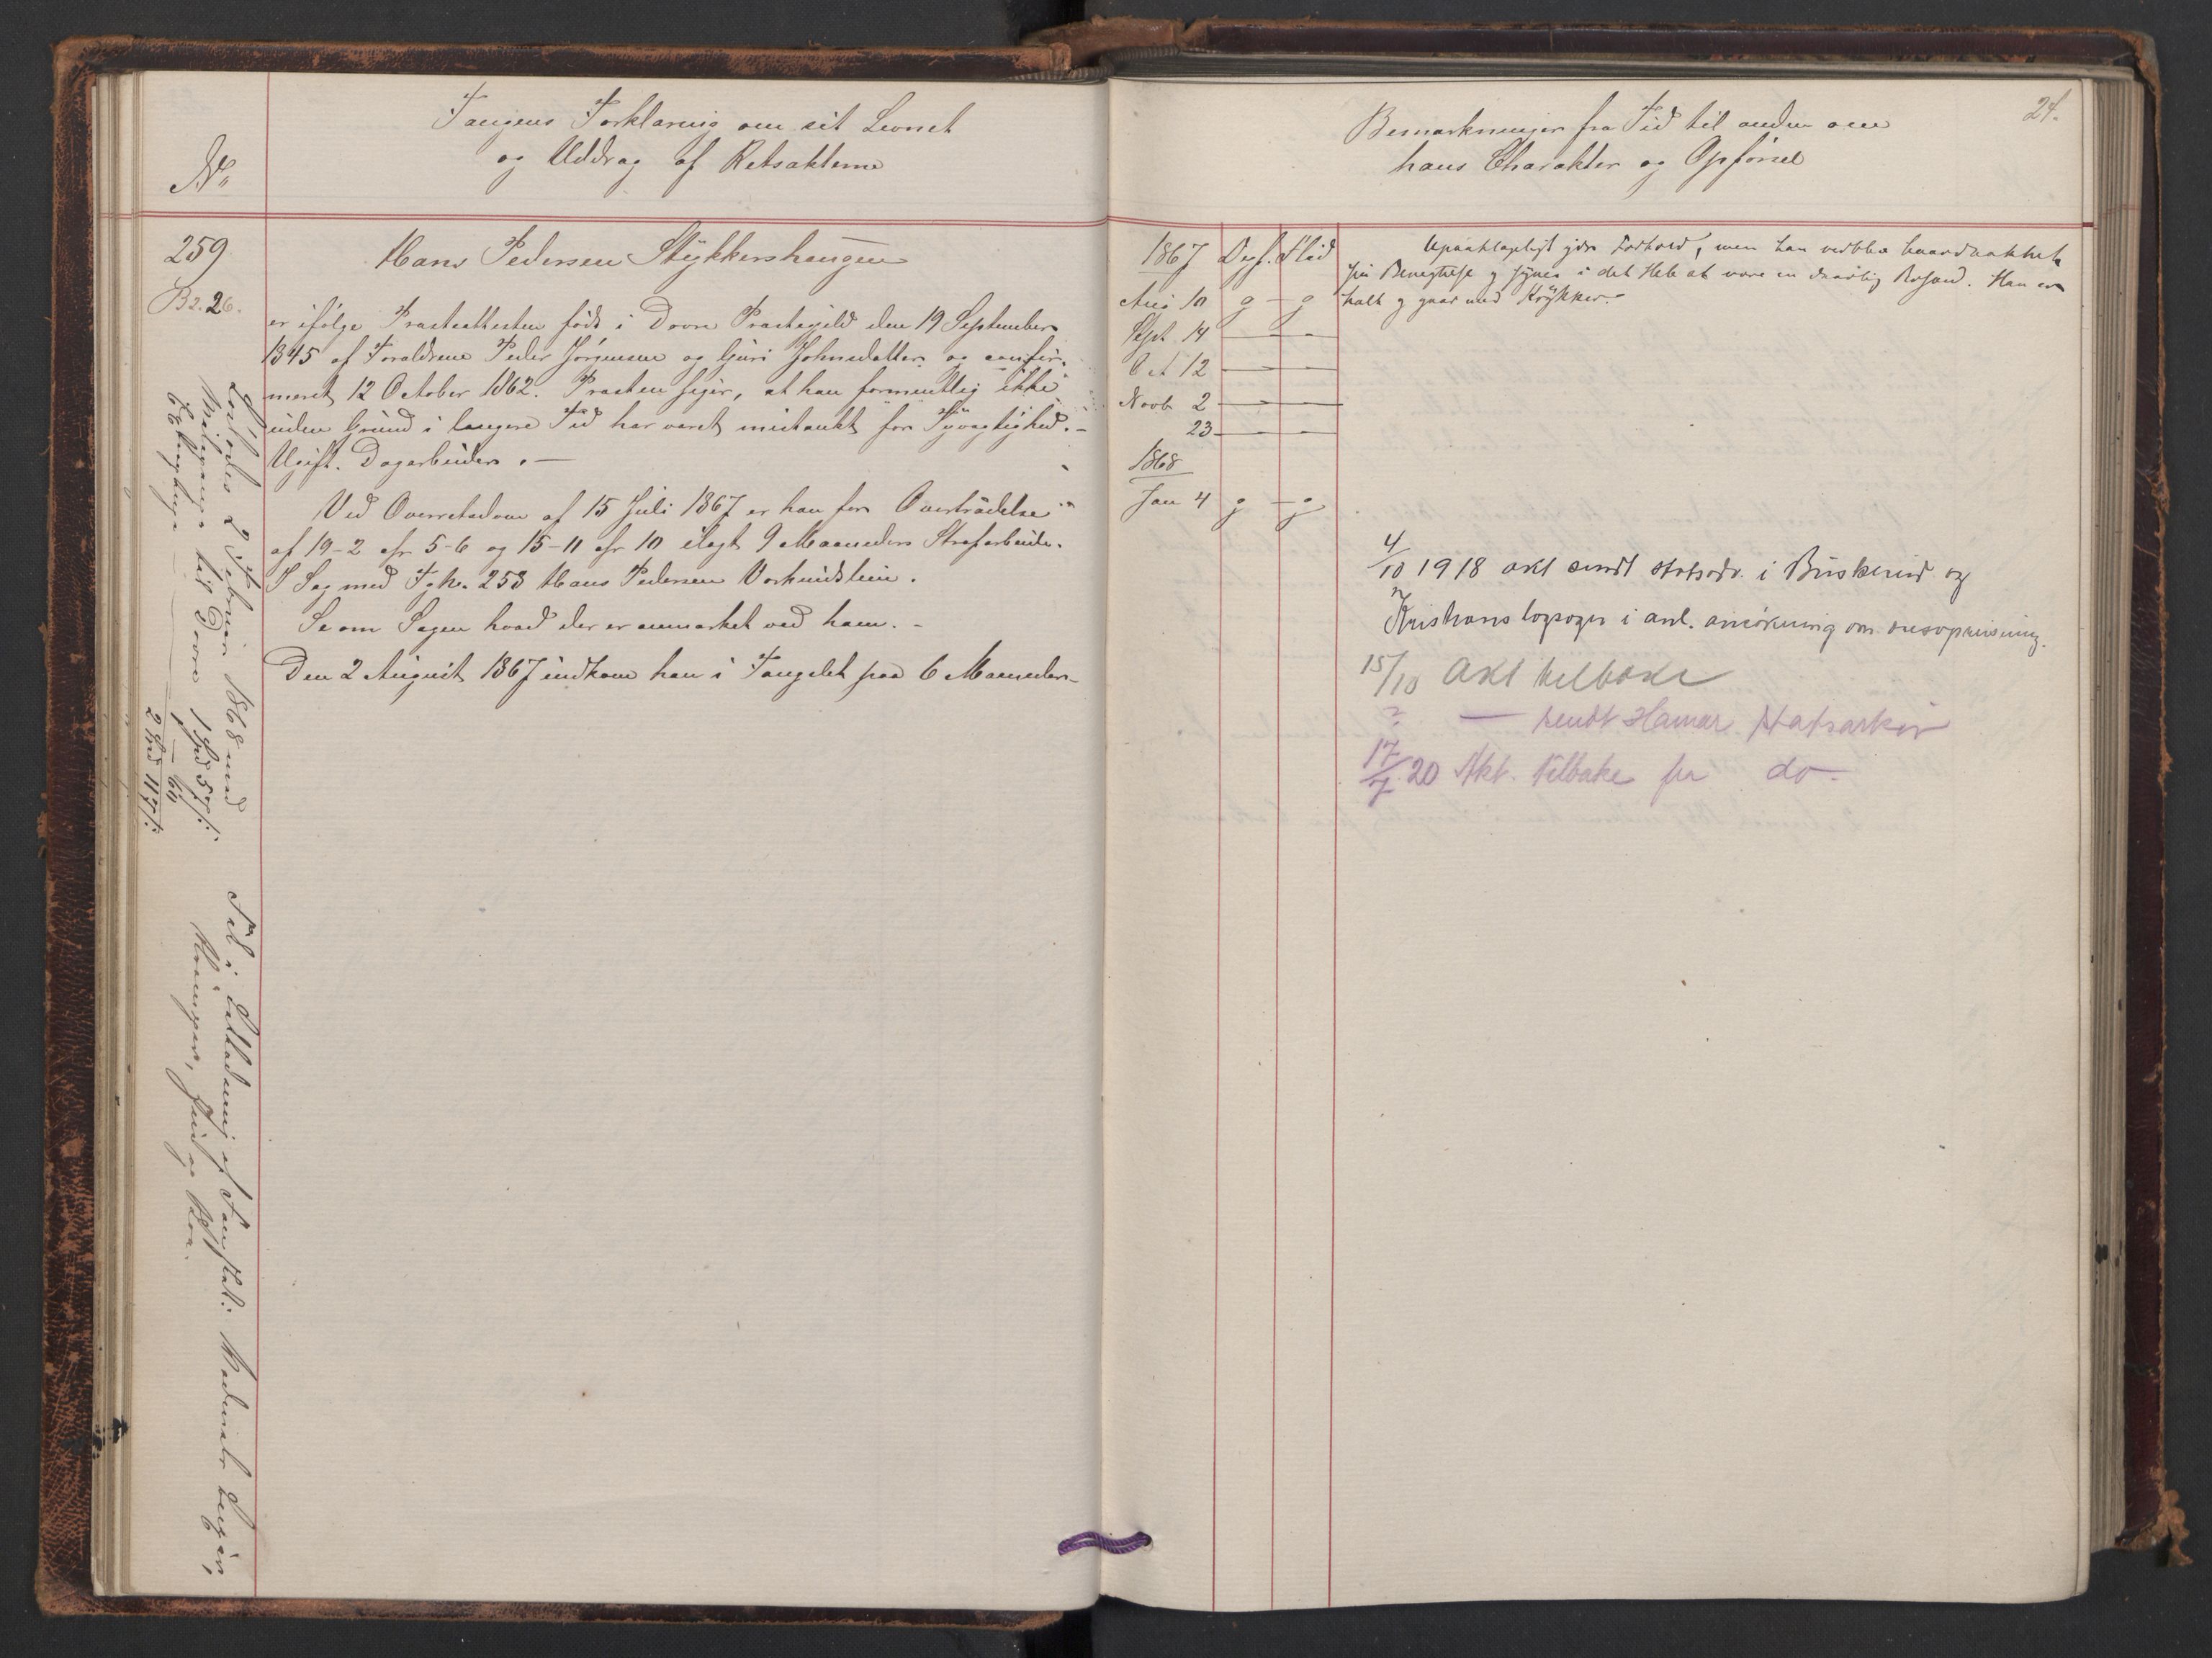 No
Fangens Forklaring om sit Levnet
og Uddrag af Retsakterne
259
Bz. 26.
Hans Pedersen Stykkershaugen
er ifølge Præsteattesten født i Dovre Præstegjeld den 19 September
1845 af Forældrene Peder Jørgensen og Guri Johnsdatter og confir-
meret 12 October 1862. Præsten siger, at han formentlig ikke
uden Grund i længere Tid har været mistænkt for Tyvagtighed. -
Ugift. Dagarbeider. -
Ved Overretsdom af 15 Juli 1867 er han for Overtrædelse
af 19-2 cfr 5-6 og 15-11 cfr 10 ilagt 9 Maaneders Strafarbeide.
I Sag med Fg No. 258 Hans Pedersen
Se om Sagen hvad der er anmærket ved ham. -
Den 2 August 1867 indkom han i Fangslet paa 6 Maaneder
Loslades 2 Februar 1868 med
til Dovre 1 Spd 57 s:
1 - 60
2 Spd 117 s:
Til i af
og
24.
Bemærkninger fra Tid til anden om
hans Charakter og Opførsel
1867 Opf. Flid
Aug 10 g - g
Sept. 14 — —
Oct 12 — —
Novb 2 — —
23 — —
1868
Jan 4 g - g
Upaaklageligt ydre Forhold, men han vedblev haardnakket
sin Benegtelse og synes i det Hele at være en daarlig Person. Han er
halt og gaar med Krykker. -
4/10 1918 akt sendt statsadv. i Buskerud og
Kristians lagsogn i anl. ansøkning om æresopreisning.
15/10 Akt tilbake
? — sendt Hamar Statsarkiv
17/7 20 Akt. tilbake fra do -